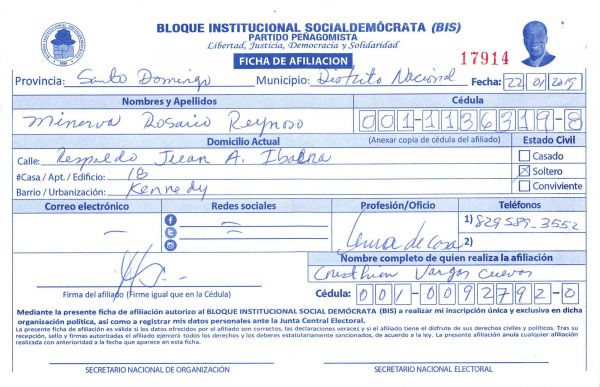 BLOQUE INSTITUCIONAL SOCIALDEMÓCRATA (BIS)
PARTIDO PEÑAGOMISTA
Libertad, Justicia, Democracia y Solidaridad
FICHA DE AFILIACION
17914
Provincia: Santo Domingo Municipio: Distrito Nacional Fecha: 22 01 2019
Nombres y Apellidos Cédula
Minerva Rosario Reynoso 001-1136319-8
Domicilio Actual (Anexar copia de cédula del afiliado) Estado Civil
Calle: Respaldo Juan A. Ibarra
Casado
#Casa / Apt. / Edificio: 18
Soltero
Barrio / Urbanización: Kennedy
Conviviente
Correo electrónico Redes sociales Profesión/Oficio Teléfonos
1) 829 589-3552
2)
Ama de Casa
Nombre completo de quien realiza la afiliación
Vargas Cuevas
Firma del afiliado (Firme igual que en la Cédula)
Cédula: 001-0092792-0
Mediante la presente ficha de afiliación autorizo al BLOQUE INSTITUCIONAL SOCIAL DEMÓCRATA (BIS) a realizar mi inscripción única y exclusiva en dicha
organización política, así como a registrar mis datos personales ante la Junta Central Electoral.
La presente ficha de afiliación es válida si los datos ofrecidos por el afiliado son correctos, las declaraciones veraces y si el afiliado tiene el disfrute de sus derechos civiles y políticos. Tras su
recepción, sello y firmas autorizadas el afiliado ejercerá todos los derechos y los deberes estatutariamente sancionados, de acuerdo a la ley. La presente afiliación anula cualquier afiliación
realizada con anterioridad a la fecha que aparece en esta ficha.
SECRETARIO NACIONAL DE ORGANIZACIÓN SECRETARIO NACIONAL ELECTORAL